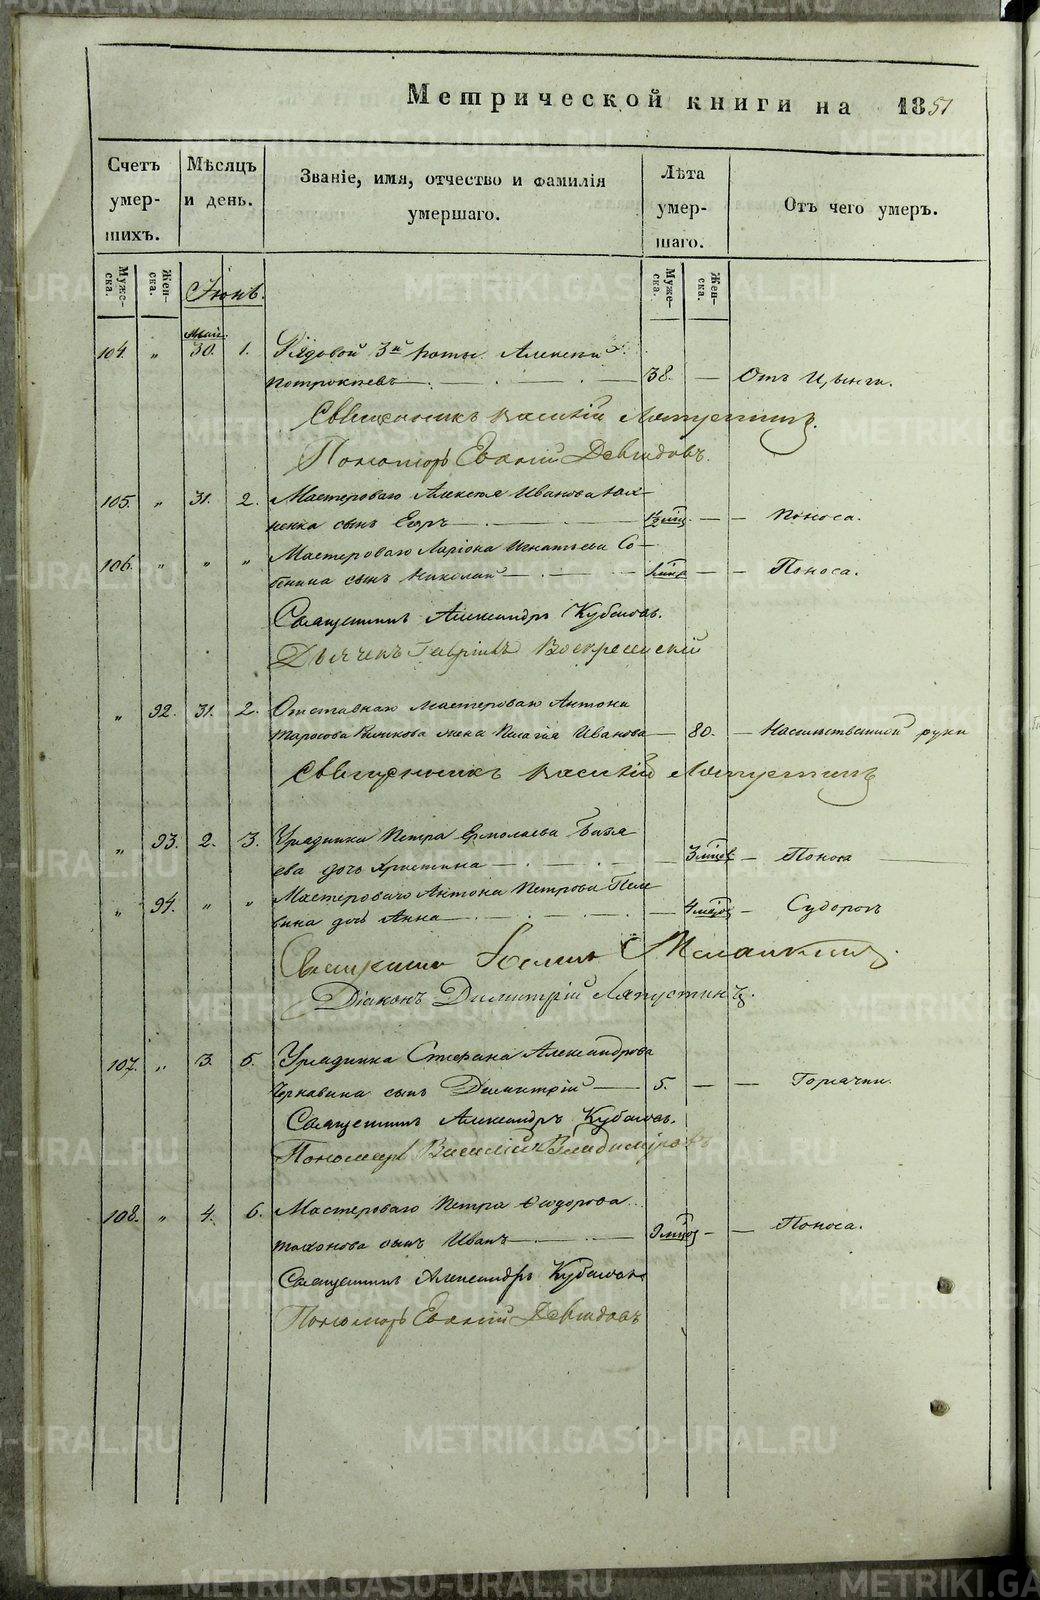 METRIKI.GASO-URAL.RU
Метрической книги на 1851
Счетъ умер- шихъ.
Мѣсяцъ и день.
Званіе, имя, отчество и фамилія умершаго.
Лѣта умер- шаго.
Отъ чего умеръ.
Муже- ска.
Жен- ска.
Іюнь.
Муже- ска.
Жен- ска.
Май
104. „ 30. 1. Рядовой 3й роты Алексѣй
38. — Отъ Цынги.
Священникъ Василій Ляпустинъ.
Пономарь Евѳимій Давыдовъ.
105. „ 31. 2. Мастероваго Алексѣя Иванова
сынъ Егоръ — — — Поноса.
106. „ „ „ Мастероваго Ларіона Игнатьева Со-
бенина сынъ Николай — — — Поноса.
Священникъ Александръ Кубасовъ.
Дьячекъ Гавріилъ Воскресенскій
„ 92. 31. 2. Отставнаго Мастероваго Антона
Тарасова жена Пелагія Иванова — 80. — Насильственной руки
Священникъ Василій Ляпустинъ
„ 93. 2. 3. Урядника Петра Ермолаева
ева дочь Христина — 3 мѣсяцев — Поноса
„ 94. „ „ Мастероваго Антона Петрова Пеле
вина дочь Анна — 4 — Судорогъ
Священникъ Іоаннъ
Діаконъ Димитрій Ляпустинъ.
107. „ 3. 5. Урядника Стефана Александрова
Чернавина сынъ Димитрій — 5. — — Горячки.
Священникъ Александръ Кубасовъ.
Пономарь Василій Владиміровъ
108. „ 4. 6. Мастероваго Петра Ѳеодорова
сынъ Иванъ — — — Поноса.
Священникъ Александръ Кубасовъ
Пономарь Евѳимій Давыдовъ